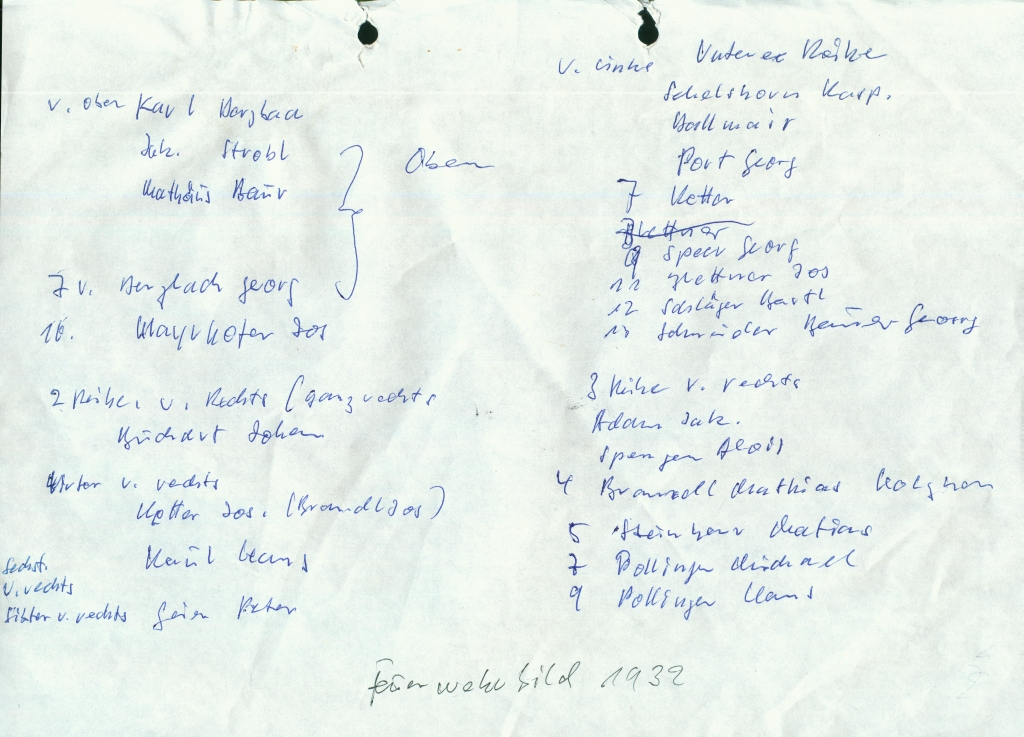 v. oben Karl Berglach
Jak. Strobl
Mathäus Baur
Oben
7 v. Berglach Georg
10. Mayrhofer Jos
2 Reihe. v. Rechts (ganz rechts
Johan
4ter v. rechts
Ketter Jos. (Brandl Jos)
Sechst. v. rechts
Kaul Hans
Sibter v. rechts Geier Peter
v. links Untere Reihe
Schelshorn Kasp.
Dallmair
Port Georg
7 Ketter
9 Speer Georg
11 Plettner Jos
12 Schläger Bartl
13 Schneider Georg
3 Reihe v. rechts
Adam Jak.
Spengen Alois
4 Brandl Mathias
5 Steinbaur Matias
7 Pollinger Michael
9 Pollinger Hans
Feuerwehrbild 1932